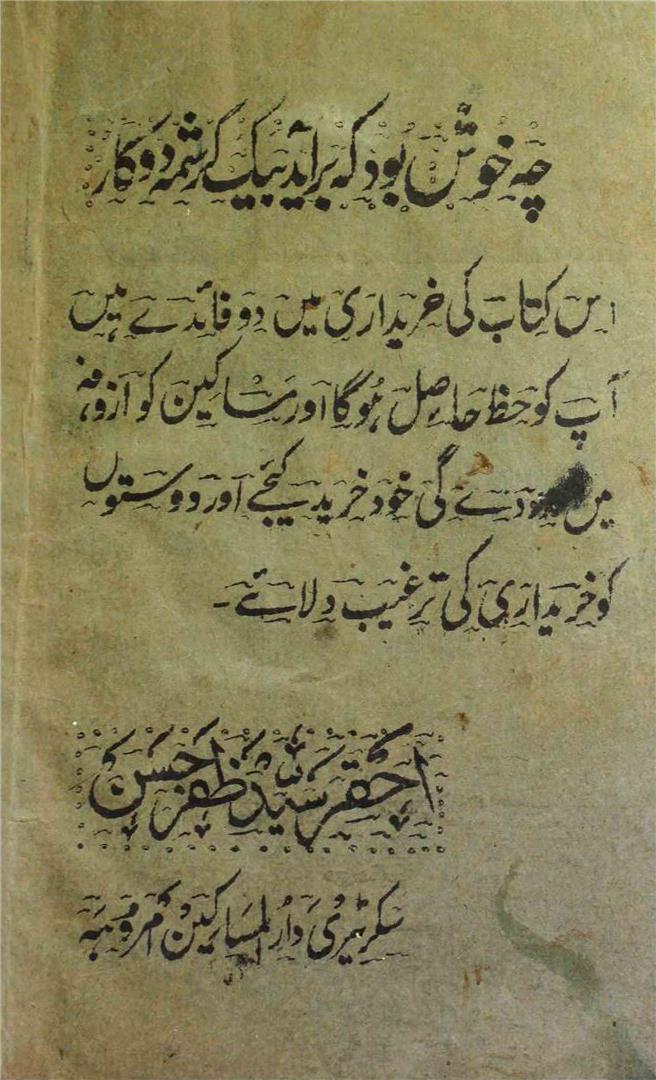 چہ خوش بود کہ برآید بیک کرشمہ دو کار
اس کتاب کی خریداری میں دو فائدے ہیں
آپ کو حظ حاصل ہوگا اور مساکین کو آزوقہ
میں دے گی خود خرید کیجے اور دوستوں
کو خریداری کی ترغیب دلائے۔
احقر سید ظفر حسن
سکرٹیری دار المساکین امروہہ